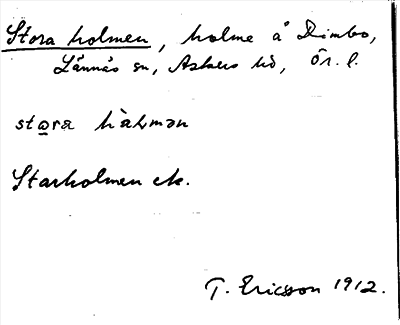 Stora holmen, holme å Dimbo,
Lännäs sn, Askers hd, Ör. l.
stɷra hàɫmən
Starholmen ek.
T. Ericsson 1912.